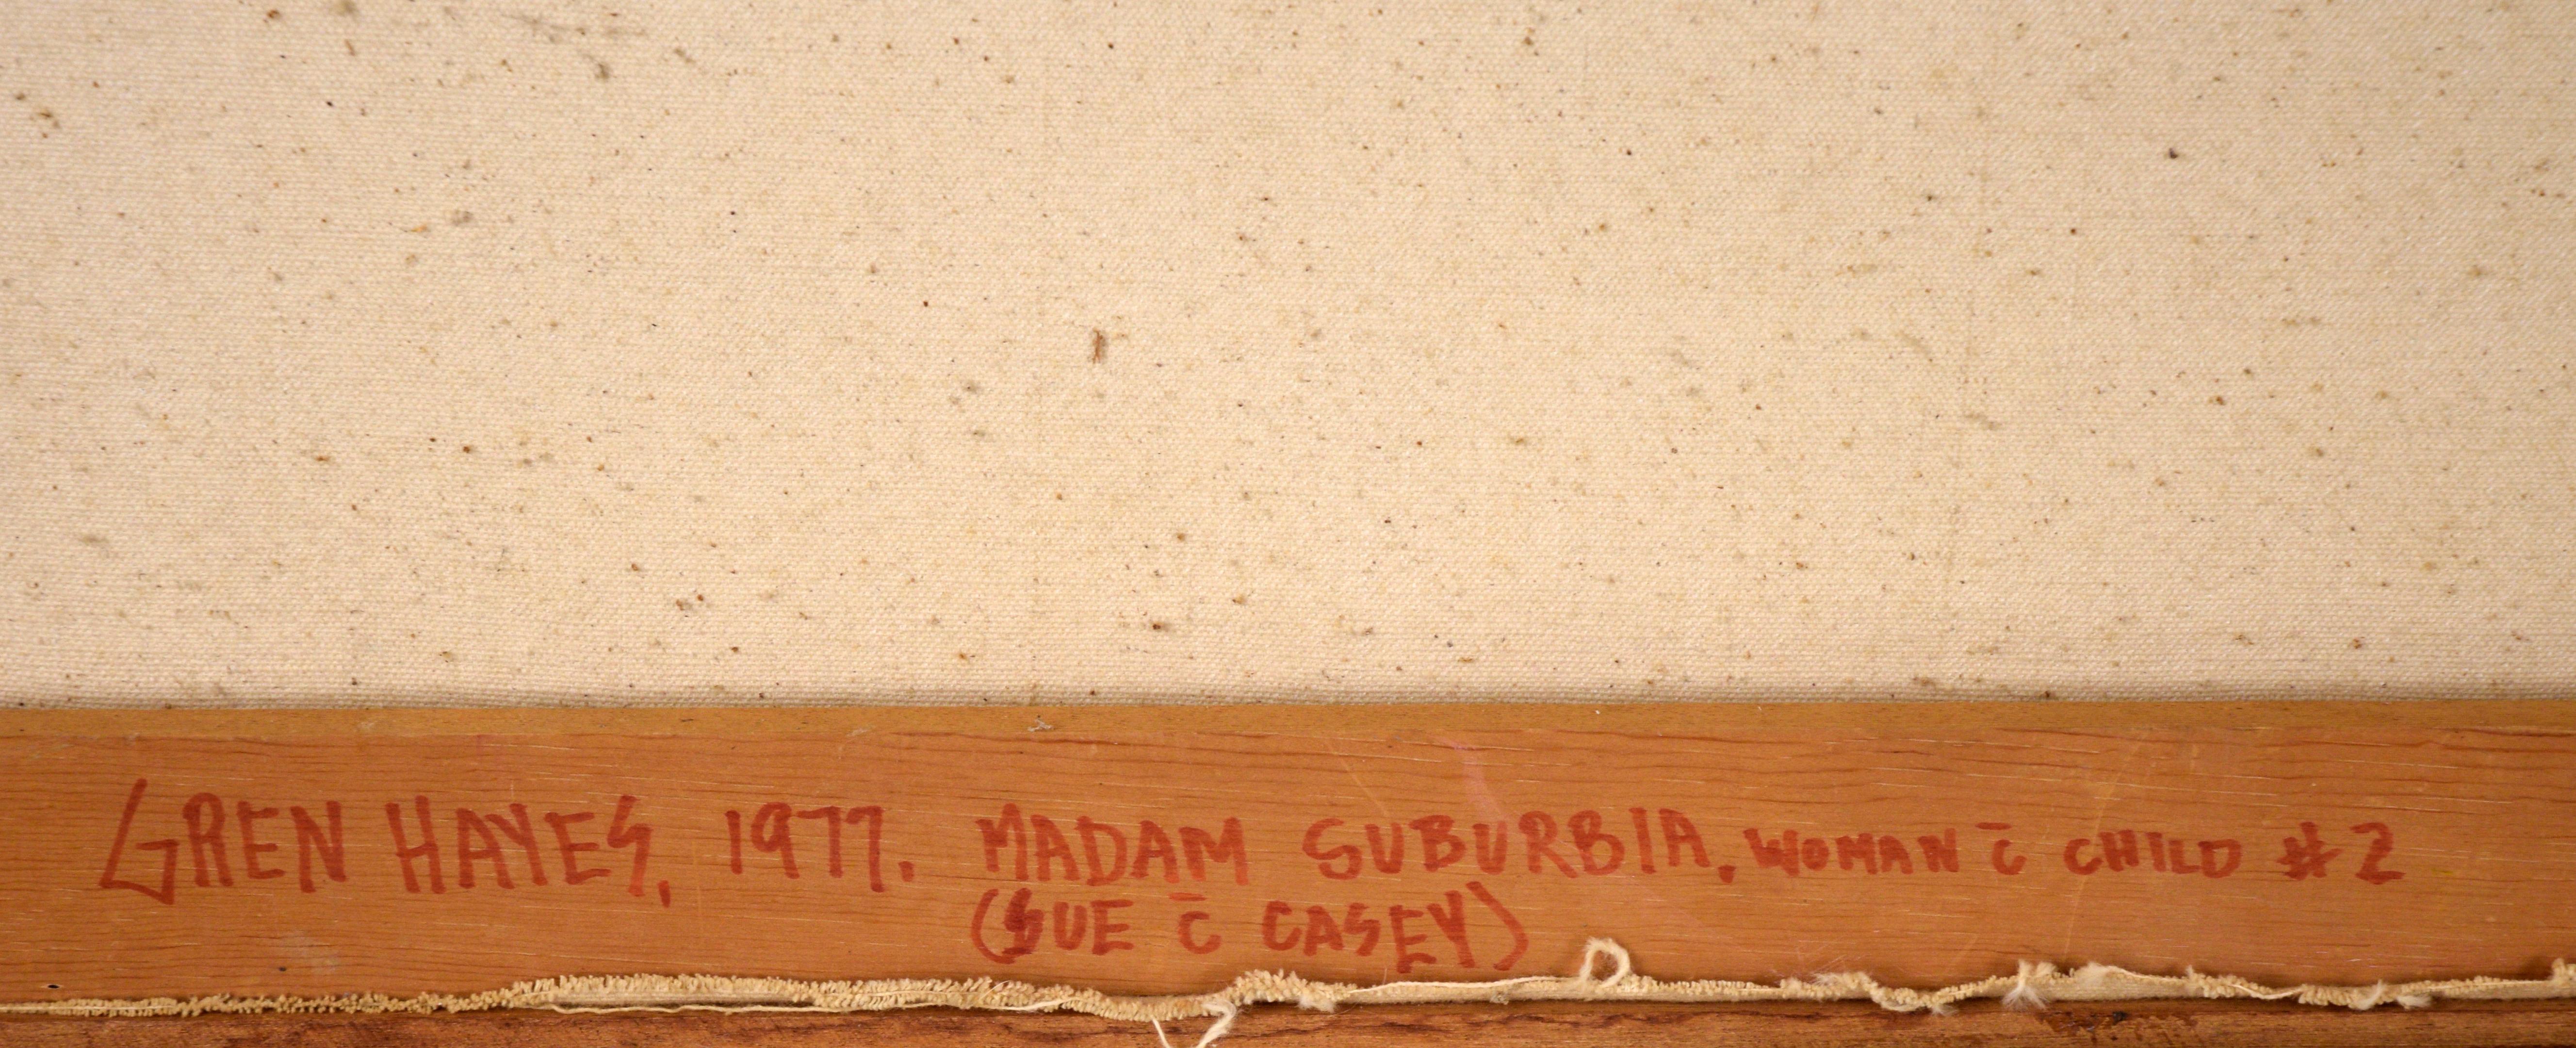 GREN HAYES, 1977. MADAM SUBURBIA, WOMAN c̄ CHILD #2
(SUE c̄ CASEY)